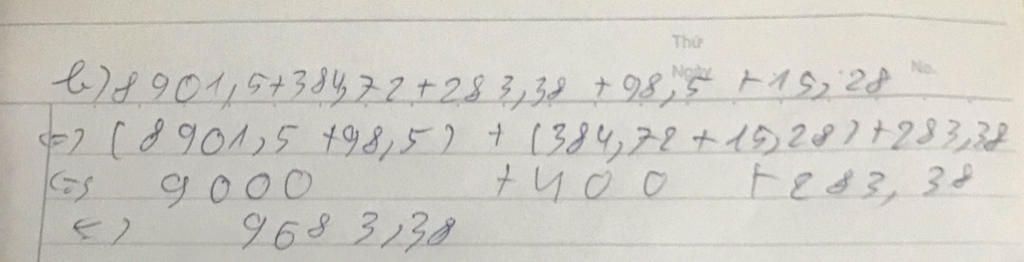 Thứ
Ngày No.
b) 8901,5+384,72+283,38 +98,5 +15,28
<=> (8901,5 +98,5) + (384,72+15,28)+283,38
<=> 9000 +400 +283,38
<=> 9683,38